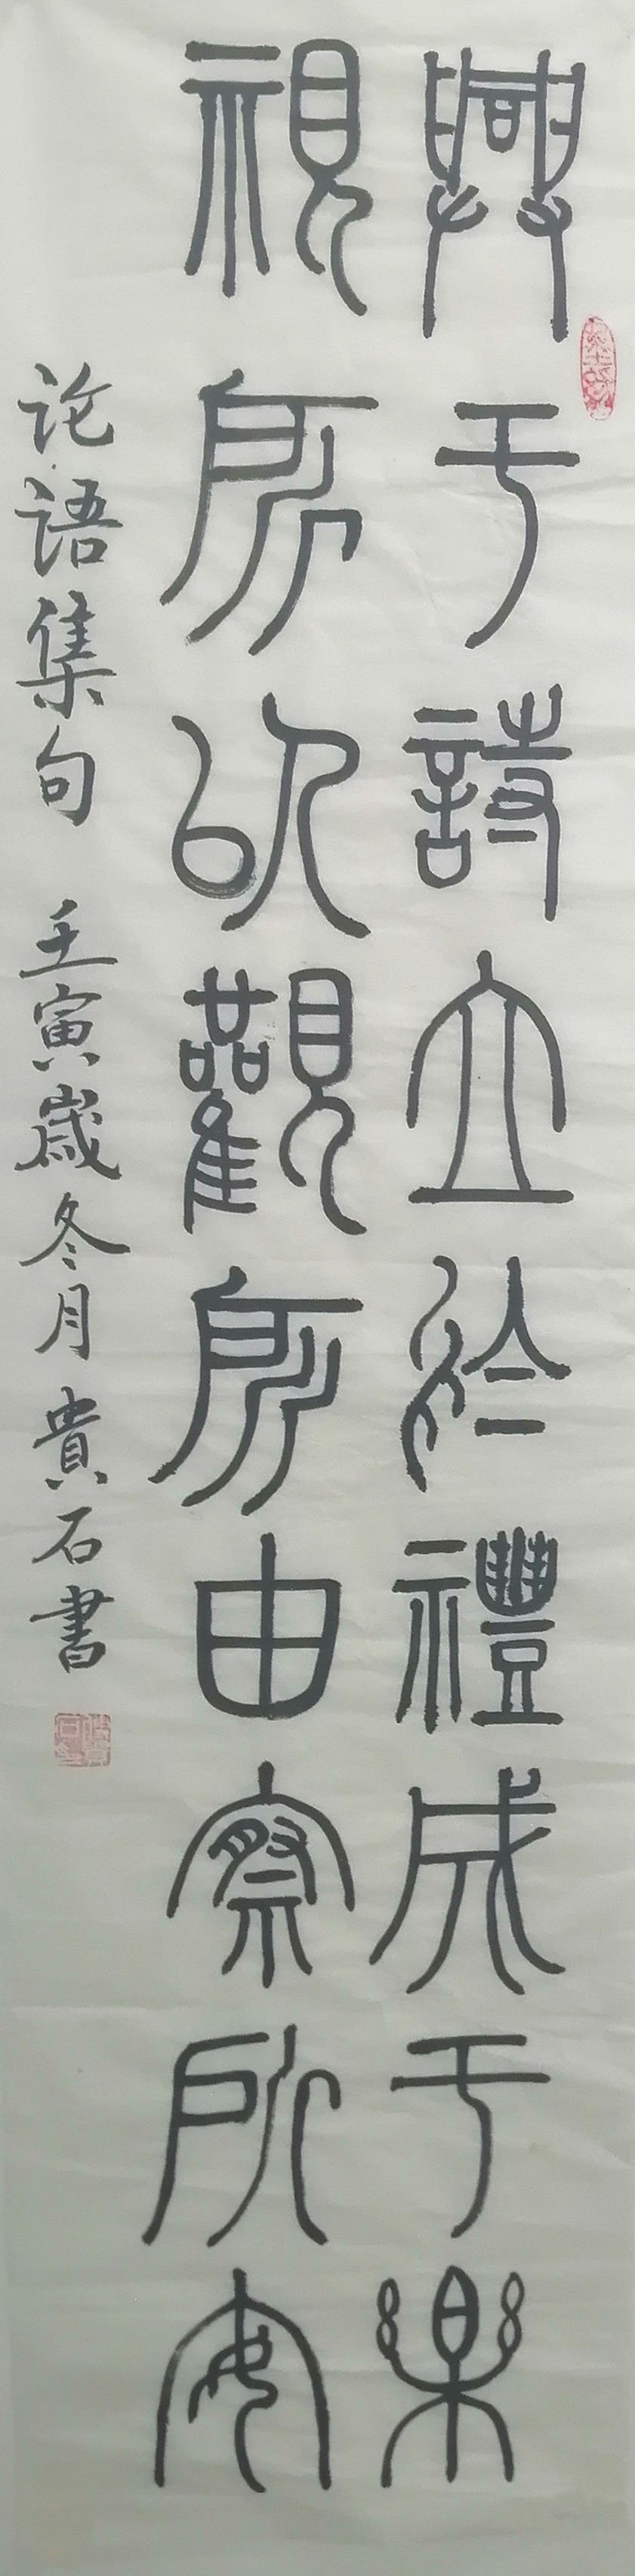 興于詩立於禮成于樂
視所以觀所由察所安
论语集句 壬寅歲冬月貴石書